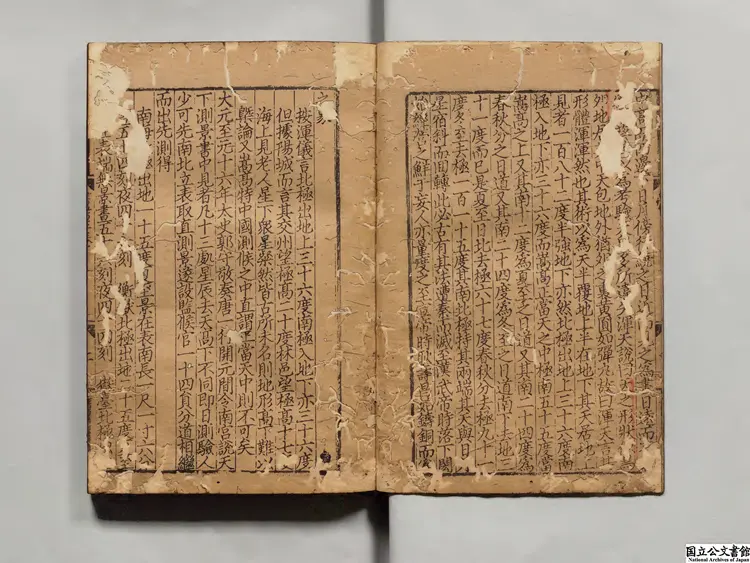 天包地外猶
裹黃圓如彈丸故曰渾天言其
形體渾渾然也其術以為天半覆地上半在地下其天居地上
見者一百八十二度半強地下亦然北極出地上三十六度南
極入地下亦三十六度而嵩高正當天之中極南五十五度當
嵩高之上又其南十二度為夏至之日道又其南二十四度為
春秋分之日道又其南二十四度為冬至之日道南下去地三
十一度而已是夏至日北去極六十七度春秋分去極九十一
度冬至去極一百一十五度其南北極持其兩端其天與日月
星宿斜而回轉此必古有其法遭秦而滅至漢武帝時落下閎
鮮于妄人亦量度之至宣帝時耿壽昌始鑄銅而為
之象
按渾儀言北極出地上三十六度南極入地下亦三十六度
但據陽城而言其交州望極高二十度林邑望極高十七度
海上見老人星下眾星粲然皆古所未名則地形高下難以
槩論又嵩高特中國測候之中直謂當天中則不可矣
大元至元十六年太史郭守敬奏唐一行開元間令南宮說天
下測景書中見者凡十三處星辰去天高下不同即日測驗人
少可先南北立表取直測景遂設監候官一十四員分道相繼
而出先測得
南海北極出地一十五度夏至景在表南長一尺一寸六分
五十四刻夜四十六刻 衡岳北極出地二十五度夏至
表端無景晝五十六刻夜四十四刻 嶽臺北極
国立公文書館
National Archives of Japan